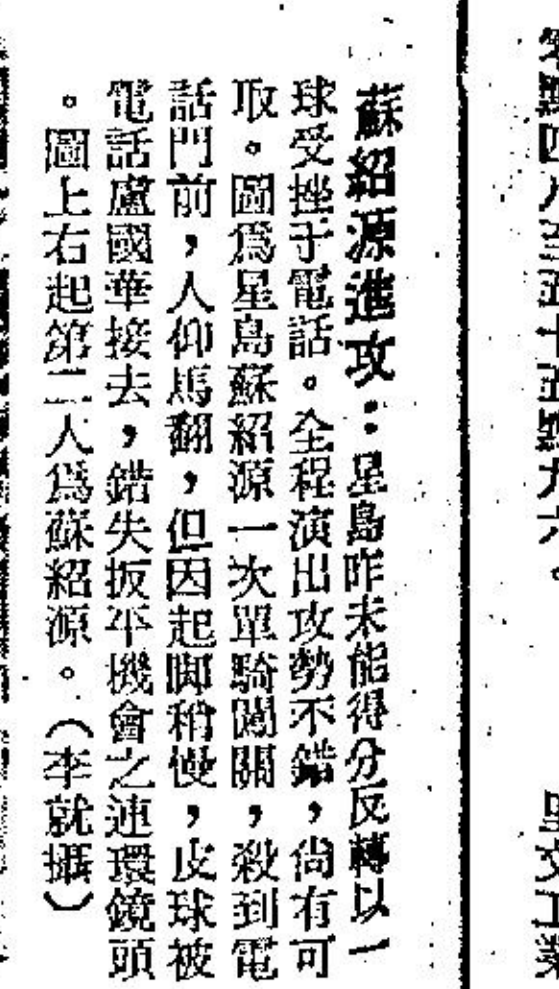 蘇紹源進攻：星島昨未能得分反轉以一
球受挫于電話。全程演出攻勢不錯，尙有可
取。圖爲星島蘇紹源一次單騎闖關，殺到電
話門前，人仰馬翻，但因起脚稍慢，皮球被
電話盧國華接去，錯失扳平機會之連環鏡頭
。圖上右起第二人爲蘇紹源。（李就攝）